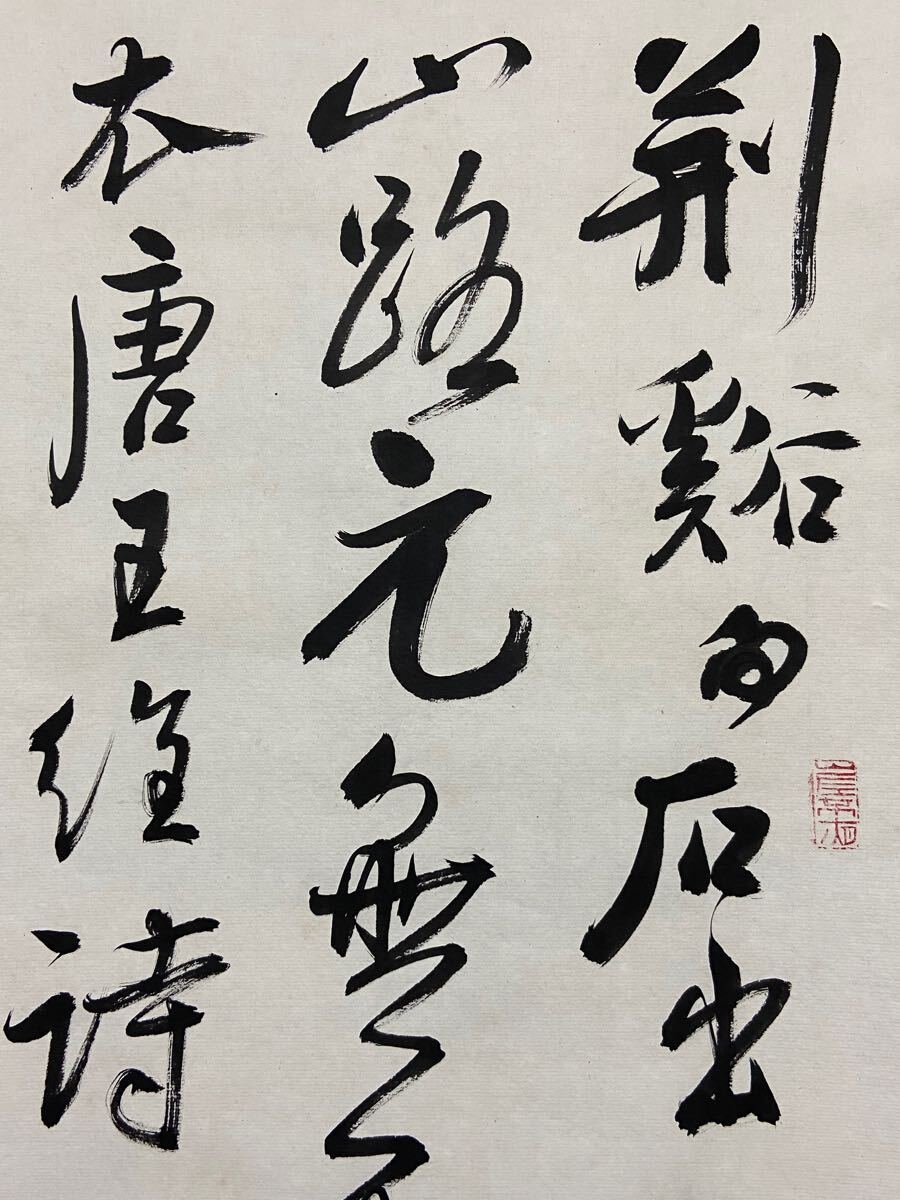 荆谿白石出
山路元無
衣唐王維詩